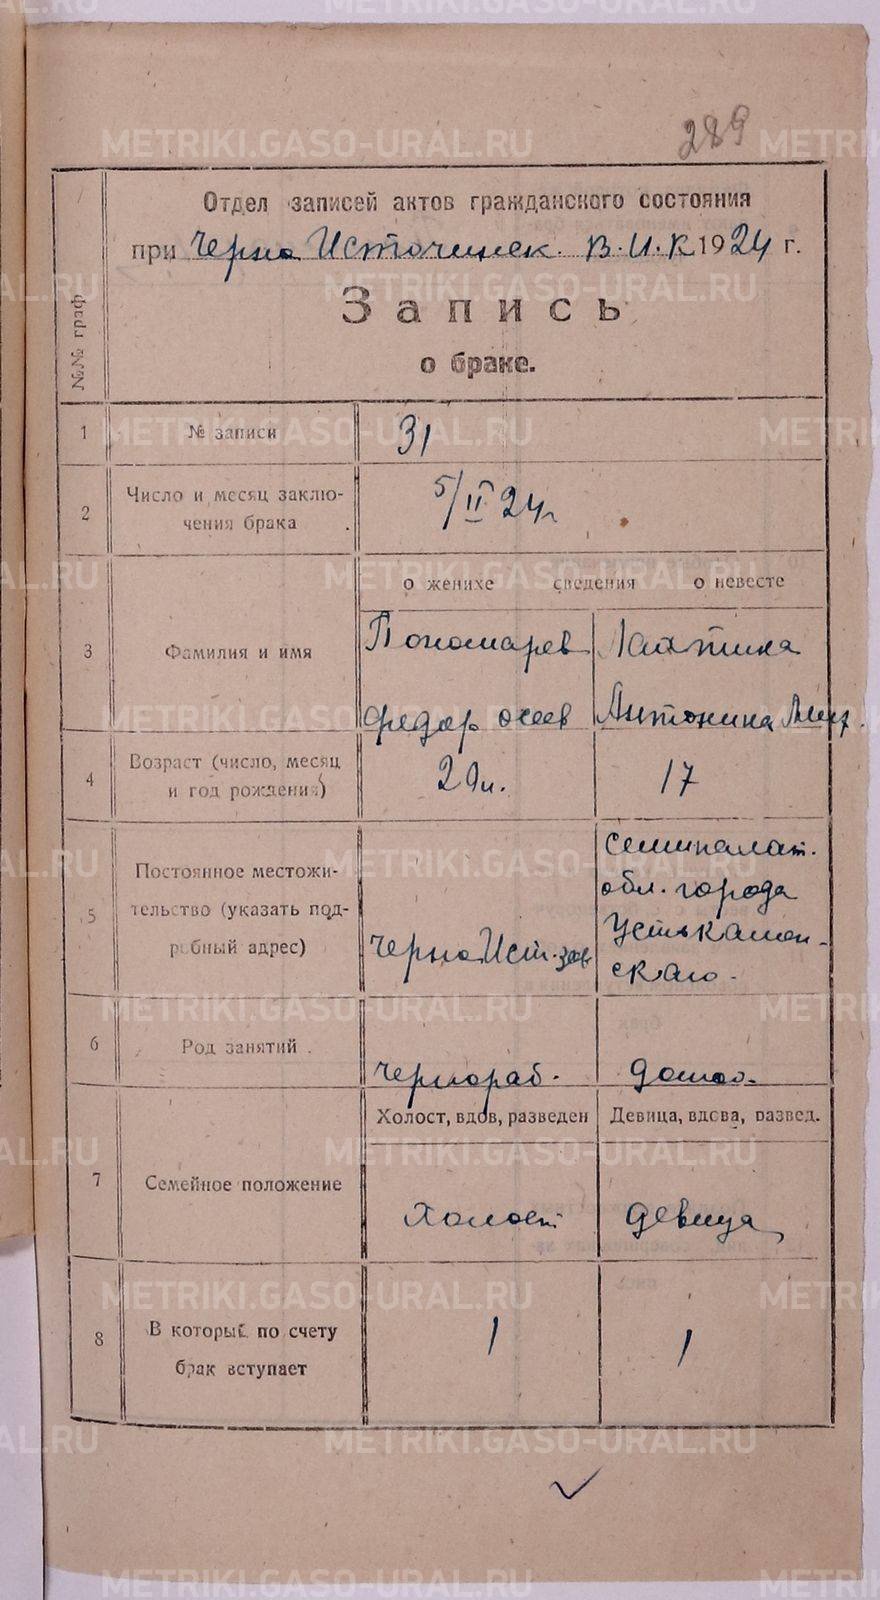 289
Отдел записей актов гражданского состояния
при Черно Источинск. В.И.К 1924 г.
Запись
о браке.
№№ граф
1 № записи 31
2 Число и месяц заключения брака 5/II 24г
о женихе сведения о невесте
3 Фамилия и имя
Пономарев Лаптина
Федор Антонина
4 Возраст (число, месяц
и год рождения) 17
5 Постоянное местожи-
тельство (указать под-
робный адрес)
Черно Ист. зав
Семипалат.
обл. города
Устькамен-
скаго.
6 Род занятий
Чернораб. домох.
Холост, вдов, разведен Девица, вдова, развед.
7 Семейное положение
Холост девица
8 В который по счету
брак вступает
1 1
METRIKI.GASO-URAL.RU